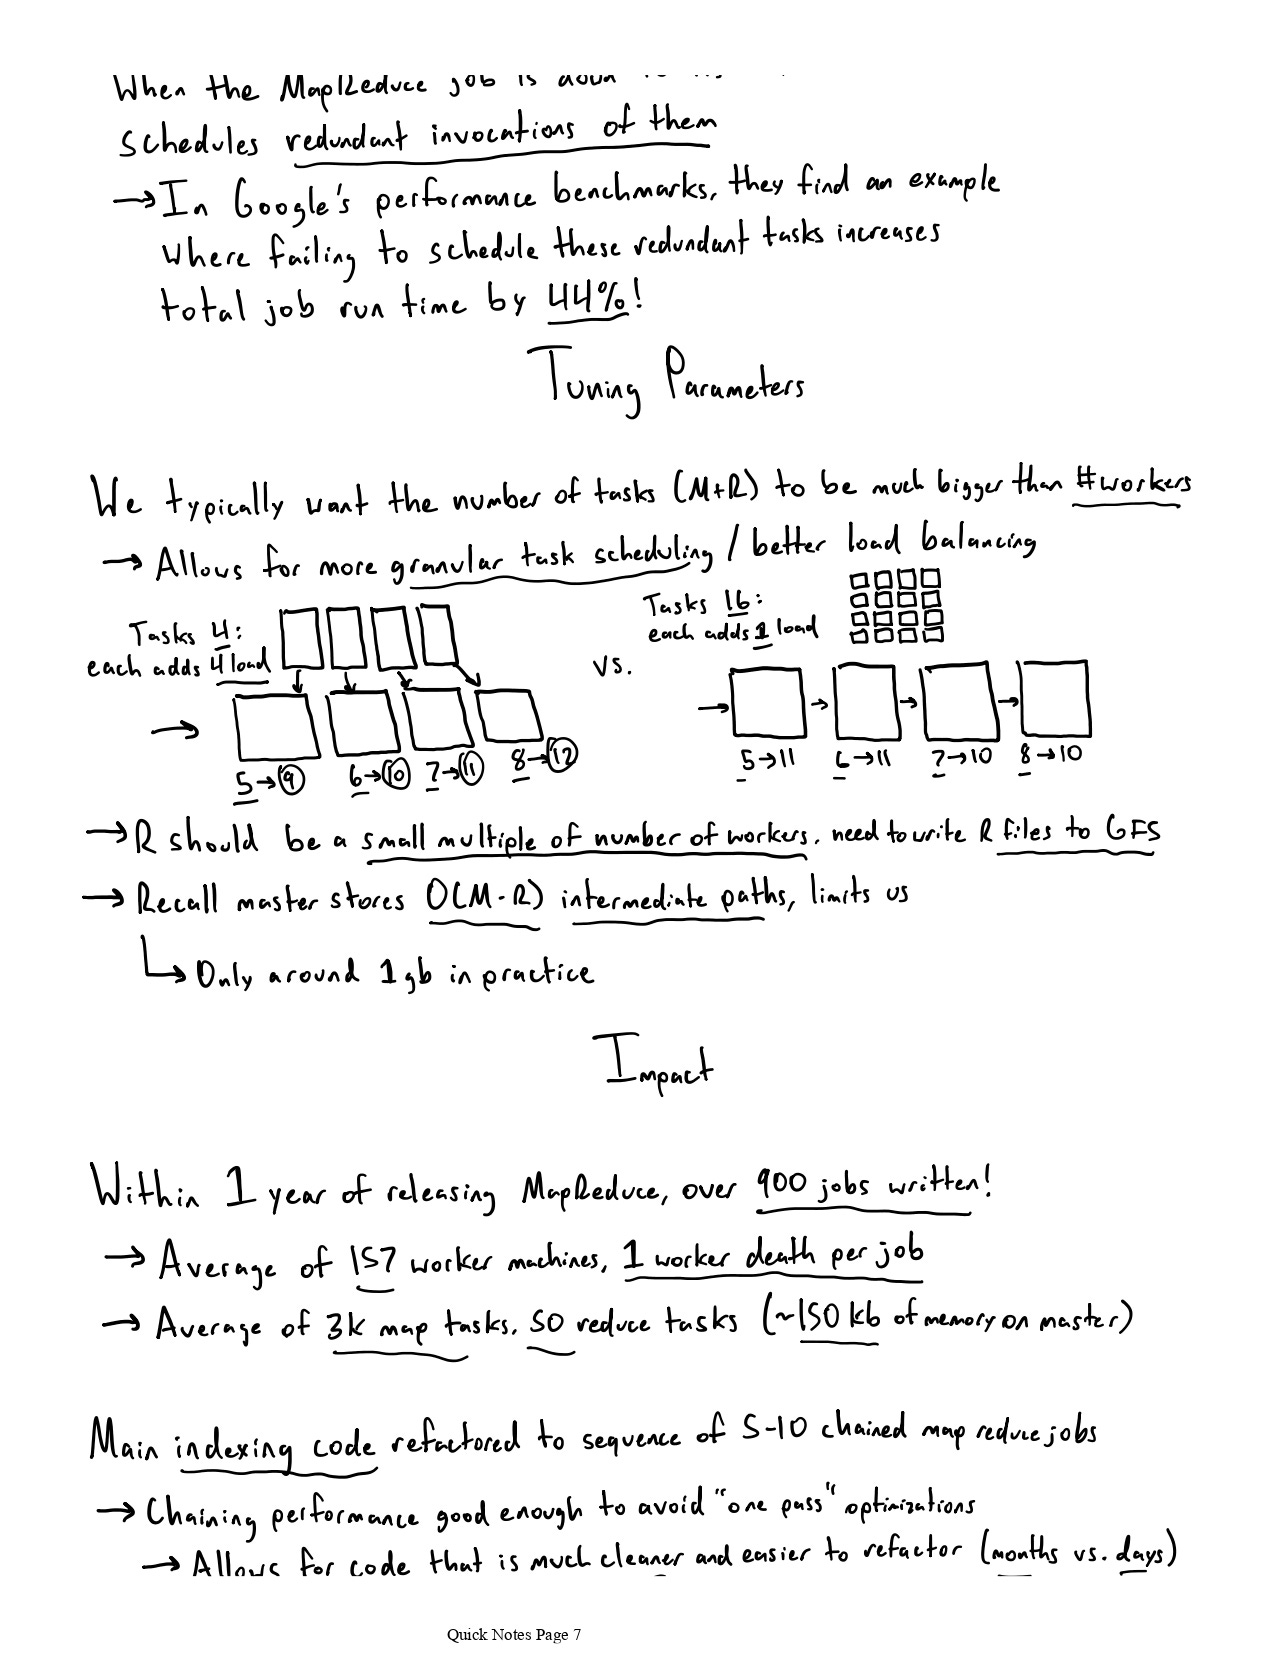 When the MapReduce job is
schedules redundant invocations of them
→ In Google's performance benchmarks, they find an example
where failing to schedule these redundant tasks increases
total job run time by 44%!
Tuning Parameters
We typically want the number of tasks (M+R) to be much bigger than #workers
→ Allows for more granular task scheduling / better load balancing
Tasks 4:
each adds 4 load
5→9 6→10 7→11 8→12
vs.
Tasks 16:
each adds 1 load
5→11 6→11 7→10 8→10
→ R should be a small multiple of number of workers, need to write R files to GFS
→ Recall master stores O(M·R) intermediate paths, limits us
↳ Only around 1gb in practice
Impact
Within 1 year of releasing MapReduce, over 900 jobs written!
→ Average of 157 worker machines, 1 worker death per job
→ Average of 3k map tasks, 50 reduce tasks (~150 kb of memory on master)
Main indexing code refactored to sequence of 5-10 chained map reduce jobs
→ Chaining performance good enough to avoid "one pass" optimizations
→ Allows for code that is much cleaner and easier to refactor (months vs. days)
Quick Notes Page 7